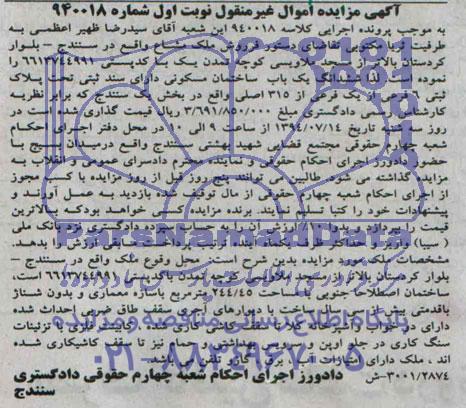 آگهی مزایده اموال غیرمنقول نوبت اول شماره ۹۴۰۰۱۸
به موجب پرونده اجرایی کلاسه ۹۴۰۰۱۸ این شعبه آقای سیدرضا ظهیر اعظمی به
طرفیت تقاضای دستور فروش ملک مشاع واقع در سنندج - بلوار
کردستان بالاتر از مسجد بلاویسی کوچه تمدن یک با کدپستی ۶۶۱۳۷۴۴۹۹۱ را
نموده است لذا ششدانگ یک باب ساختمان مسکونی دارای سند ثبتی تحت پلاک
ثبتی ۶ فرعی از یک فرعی از ۳۱۵ اصلی واقع در بخش سنندج که برابر نظریه
کارشناس رسمی دادگستری مبلغ ۳/۶۹۱/۸۵۰/۰۰۰ ریال قیمت گذاری شده است در
روز سه شنبه تاریخ ۱۳۹۴/۰۷/۱۴ از ساعت ۹ الی ۱۰ در محل دفتر اجرای احکام
شعبه چهارم حقوقی مجتمع قضایی شهید بهشتی سنندج واقع درمیدان بسیج با
حضور دادورز اجرای احکام حقوقی و نماینده محترم دادسرای عمومی و انقلاب به
مزایده گذاشته می شود. طالبین می توانند پنج روز قبل از روز مزایده با کسب مجوز
از اجرای احکام شعبه چهارم حقوقی از مال توقیف شده بازدید به عمل آورند و
پیشنهادات خود را کتبا تسلیم نمایند. برنده مزایده کسی خواهد بود که بالاترین
قیمت را بپردازد و ارزش آن را به حساب سپرده دادگستری نزد بانک ملی
(سیبا) واریز و حداکثر ظرف یکماه مابقی ارزش را بدهد.
مشخصات ملک مورد مزایده بدین شرح است: محل وقوع ملک واقع در سنندج -
بلوار کردستان بالاتر از مسجد بلاویسی کوچه تمدن با کدپستی ۶۶۱۳۷۴۴۹۹۱ است،
ساختمان اصطلاحا جنوبی با مساحت ۲۴۴/۴۵ مترمربع باسازه معماری و بدون شناژ
باقدمتی بیش از سی سال تحت با دیوارهای آجری سقف طاق ضربی احداث شده
دارای دو خواب آشپزخانه کلا تا سقف کاشی کاری شده با تزئینات
سنگ کاری در جلو اوپن و سرویس بهداشتی و حمام نیز تا سقف کاشیکاری شده
اند، ملک دارای امتیازات آب، برق، گاز و تلفن می باشد.
۳۰۰۱/۲۸۷۴-ش دادورز اجرای احکام شعبه چهارم حقوقی دادگستری
سنندج
ParsNamadData
پایگاه اطلاع رسانی مناقصه و مزایده
۰۲۱-۸۸۳۴۹۶۷۰-۵